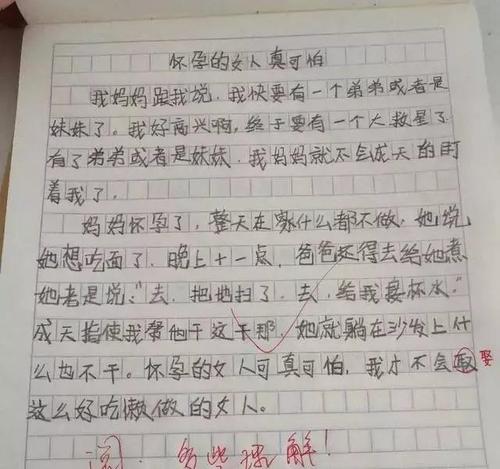 怀孕的女人真可怕
我妈妈跟我说，我快要有一个弟弟或者是
妹妹了。我好高兴啊，终于要有一个大救星了
有了弟弟或者是妹妹，我妈妈就不会成天的盯
着我了。
妈妈怀孕了，整天在家什么都不做，她说
她想吃面了，晚上十一点，爸爸还得去给她煮
她老是说："去，把地扫了，去，给我接杯水"
成天指使我帮他干这干那，她就躺在沙发上什
么也不干。怀孕的女人可真可怕，我才不会取
娶
这么好吃懒做的女人。
阅：多些理解！